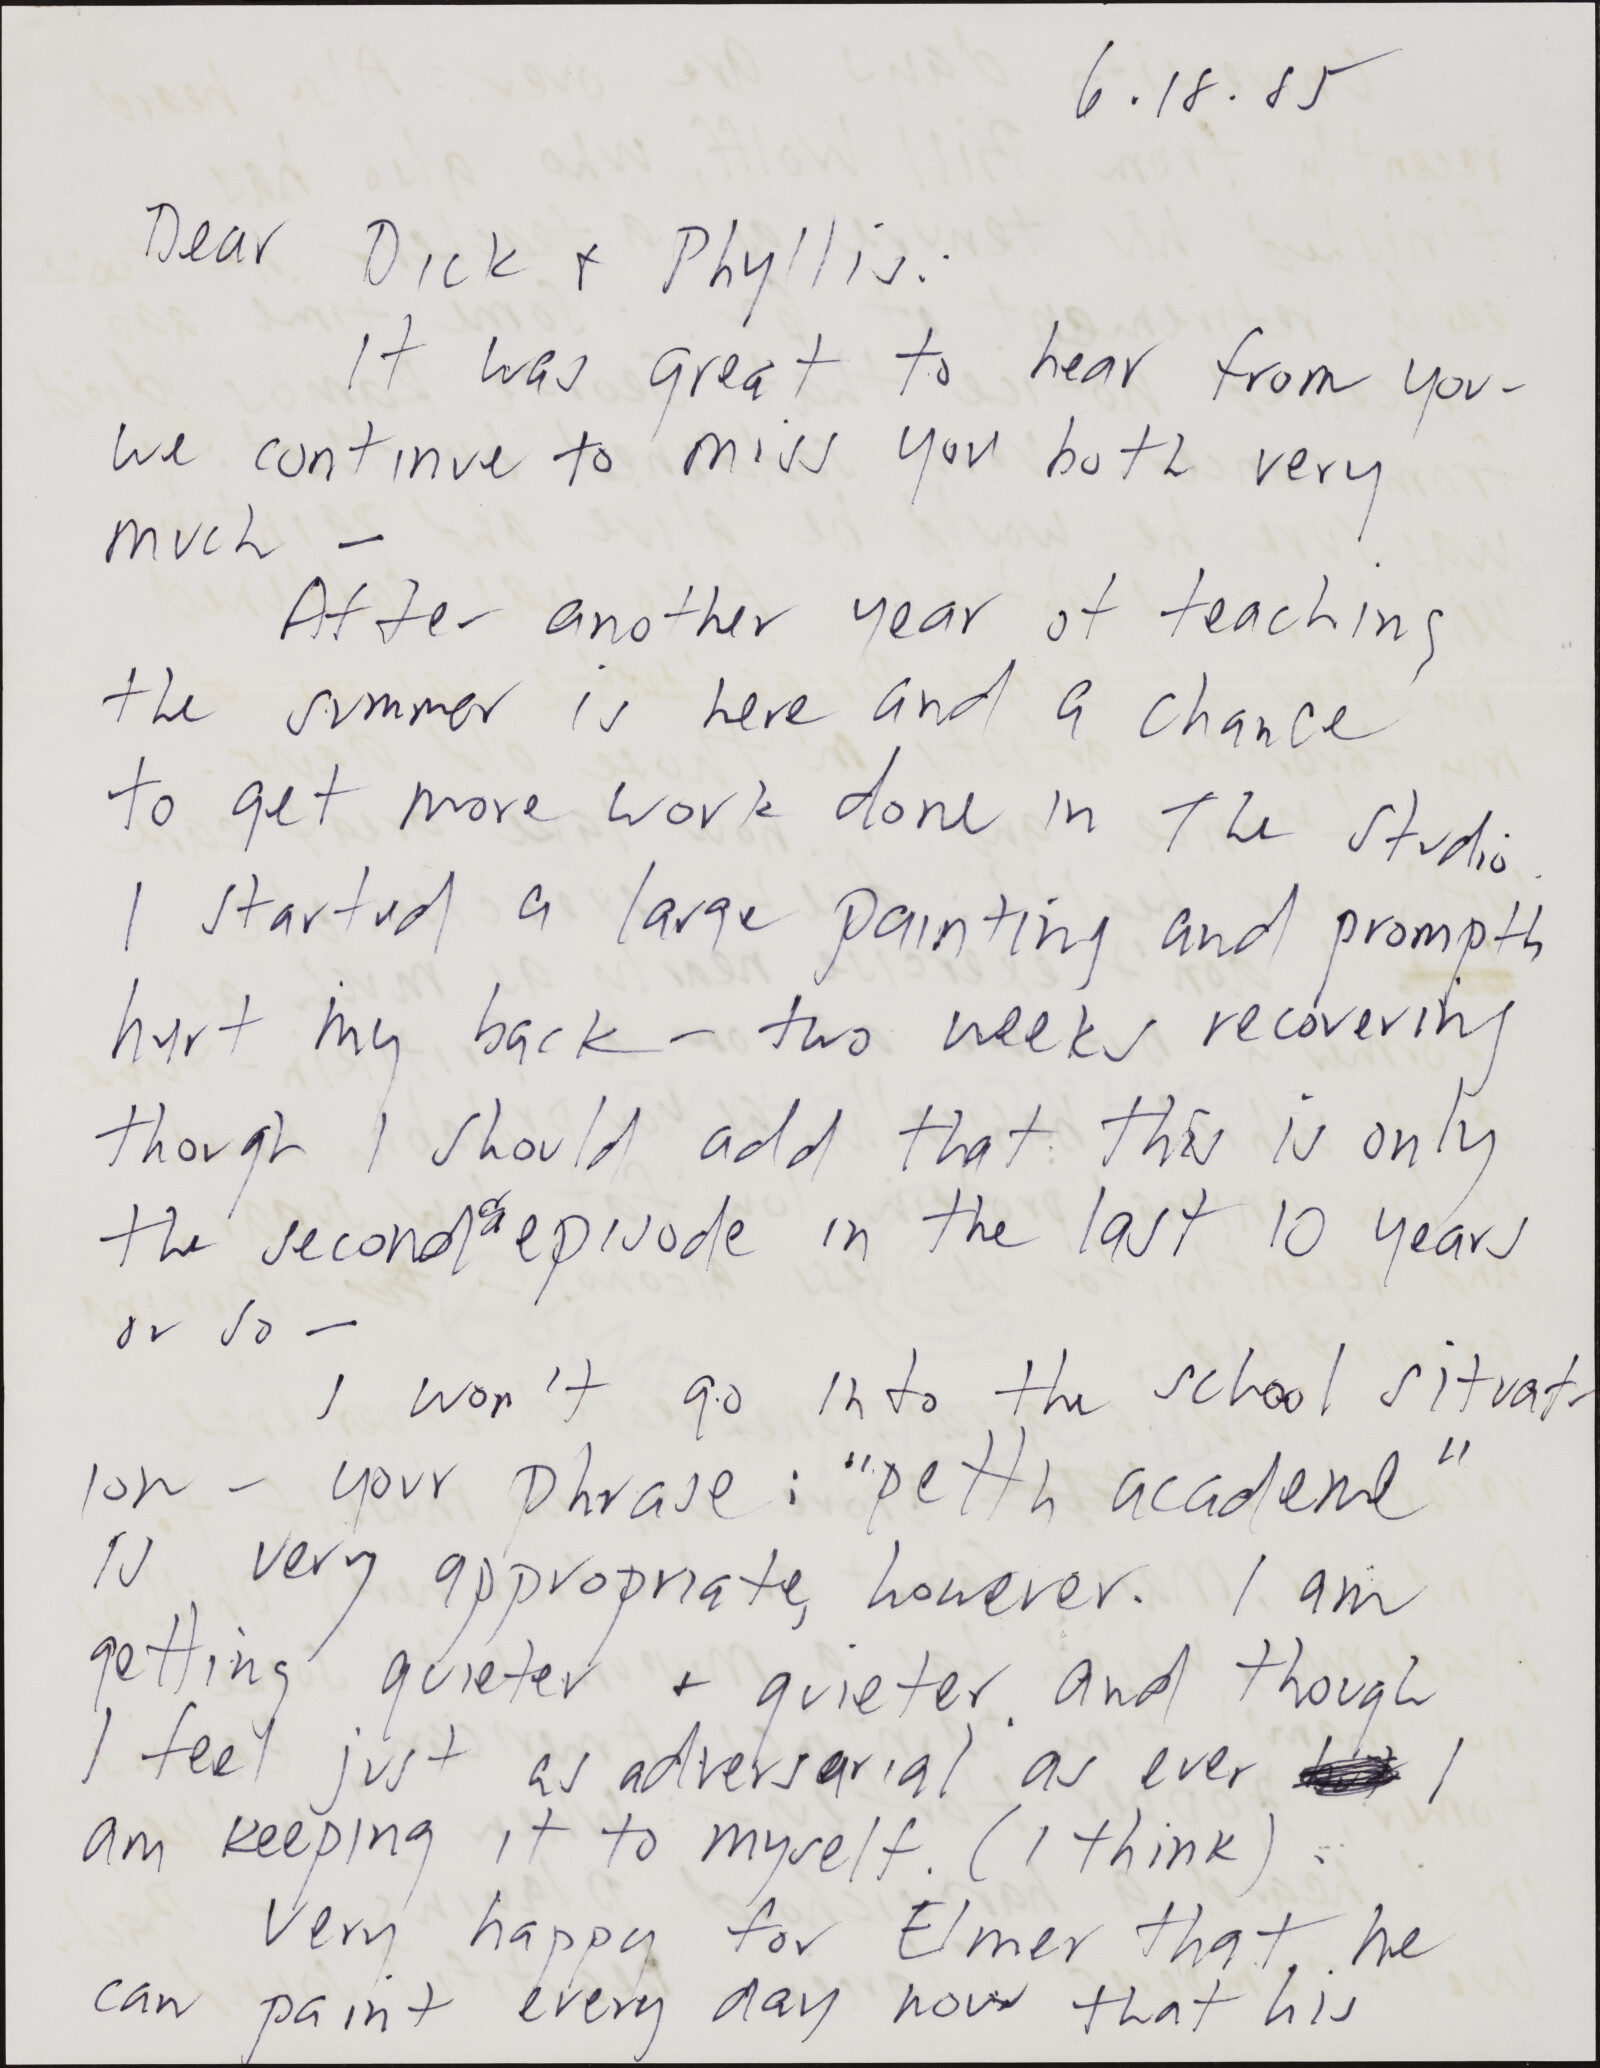 6.18.85
Dear Dick + Phyllis:
It was great to hear from you-
we continue to miss you both very
much -
After another year of teaching
the summer is here and a chance
to get more work done in the studio.
I started a large painting and promptly
hurt my back - two weeks recovering
though I should add that this is only
the second episode in the last 10 years
or so -
I won't go into the school situat-
ion - your phrase: "petth academe"
is very appropriate, however. I am
getting quieter + quieter. and though
I feel just as adversarial as ever I
am keeping it to myself. (I think).
Very happy for Elmer that he
can paint every day now that his